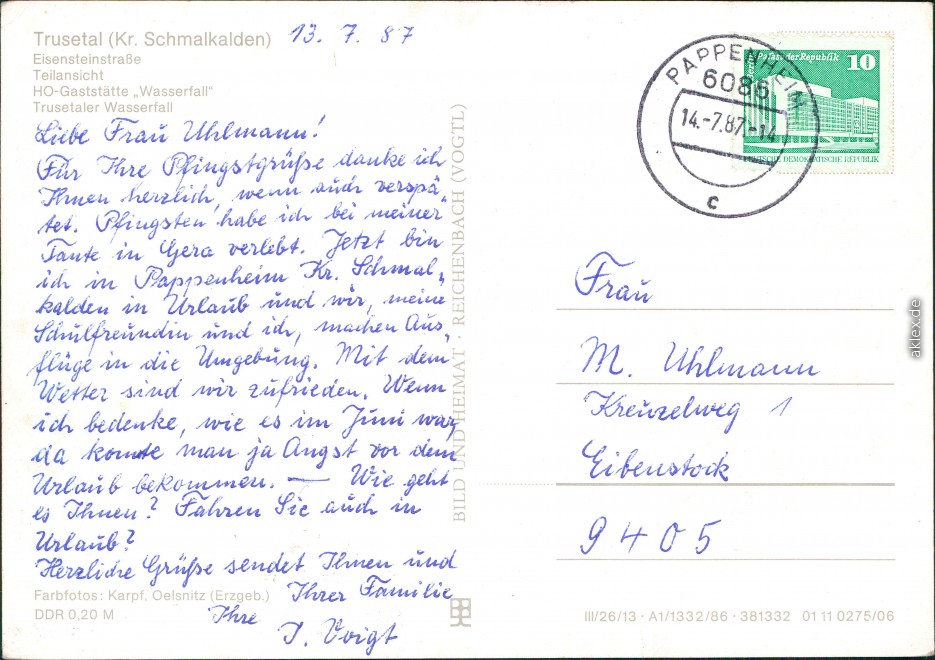 Trusetal (Kr. Schmalkalden) 13. 7. 87
Eisensteinstraße
Teilansicht
HO-Gaststätte „Wasserfall“
Trusetaler Wasserfall
Liebe Frau Uhlmann!
Für Ihre Pfingstgrüße danke ich
Ihnen herzlich, wenn auch verspä„
tet. Pfingsten habe ich bei meiner
Tante in Gera verlebt. Jetzt bin
ich in Pappenheim Kr. Schmal„
kalden in Urlaub und wir, meine
Schulfreundin und ich, machen Aus„
flüge in die Umgebung. Mit dem
Wetter sind wir zufrieden. Wenn
ich bedenke, wie es im Juni war,
da konnte man ja Angst vor dem
Urlaub bekommen. — Wie geht
es Ihnen? Fahren Sie auch in
Urlaub?
Herzliche Grüße sendet Ihnen und
Ihrer Familie
Ihre
I. Voigt
Farbfotos: Karpf, Oelsnitz (Erzgeb.)
DDR 0,20 M
BILD UND HEIMAT · REICHENBACH (VOGTL)
PAPPENHEIM
6086
14.-7.87.-14
c
Palast der Republik 10
DEUTSCHE DEMOKRATISCHE REPUBLIK
Frau
M. Uhlmann
Kreuzelweg 1
Eibenstock
9405
III/26/13 · A1/1332/86 · 381332 01 11 0275/06
aklex.de